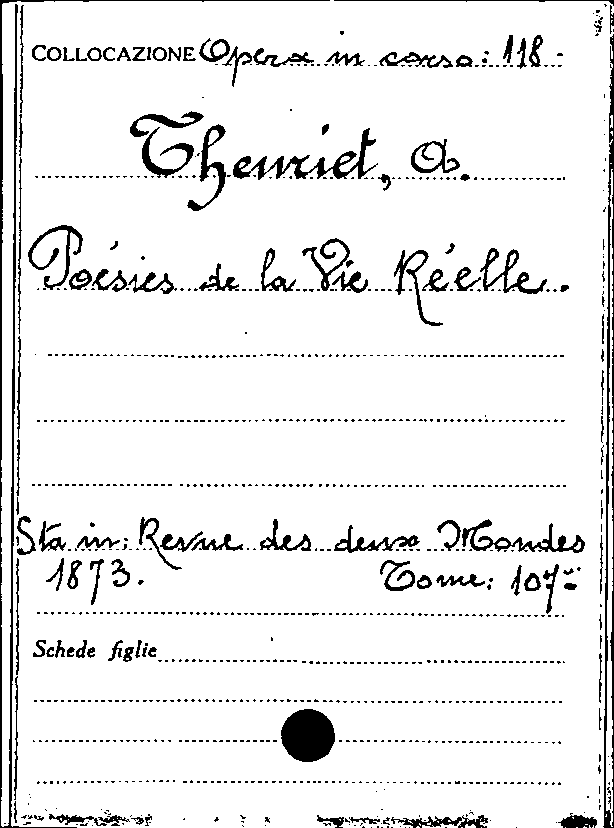 COLLOCAZIONE Opera in corso: 118 -
Theuriet, A.
Poésies de la Vie Réelle.
Sta in: Revue des deux Mondes
1873. Tome: 107ⁱᵉ
Schede figlie